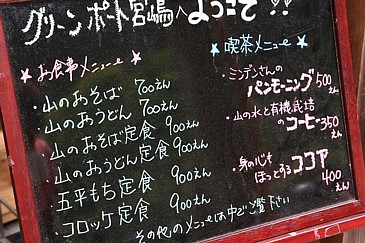 グリーンポート宮嶋へようこそ!!
★お食事メニュー★
・山のおそば 700えん
・山のおうどん 700えん
・山のおそば定食 900えん
・山のおうどん定食 900えん
・五平もち定食 900えん
・コロッケ定食 900えん
その他のメニューは中でご覧下さい
★喫茶メニュー★
・ミンデンさんの
パンモーニング 500えん
・山の水と有機栽培
のコーヒー 350えん
・身も心も
ほっとするココア
400えん